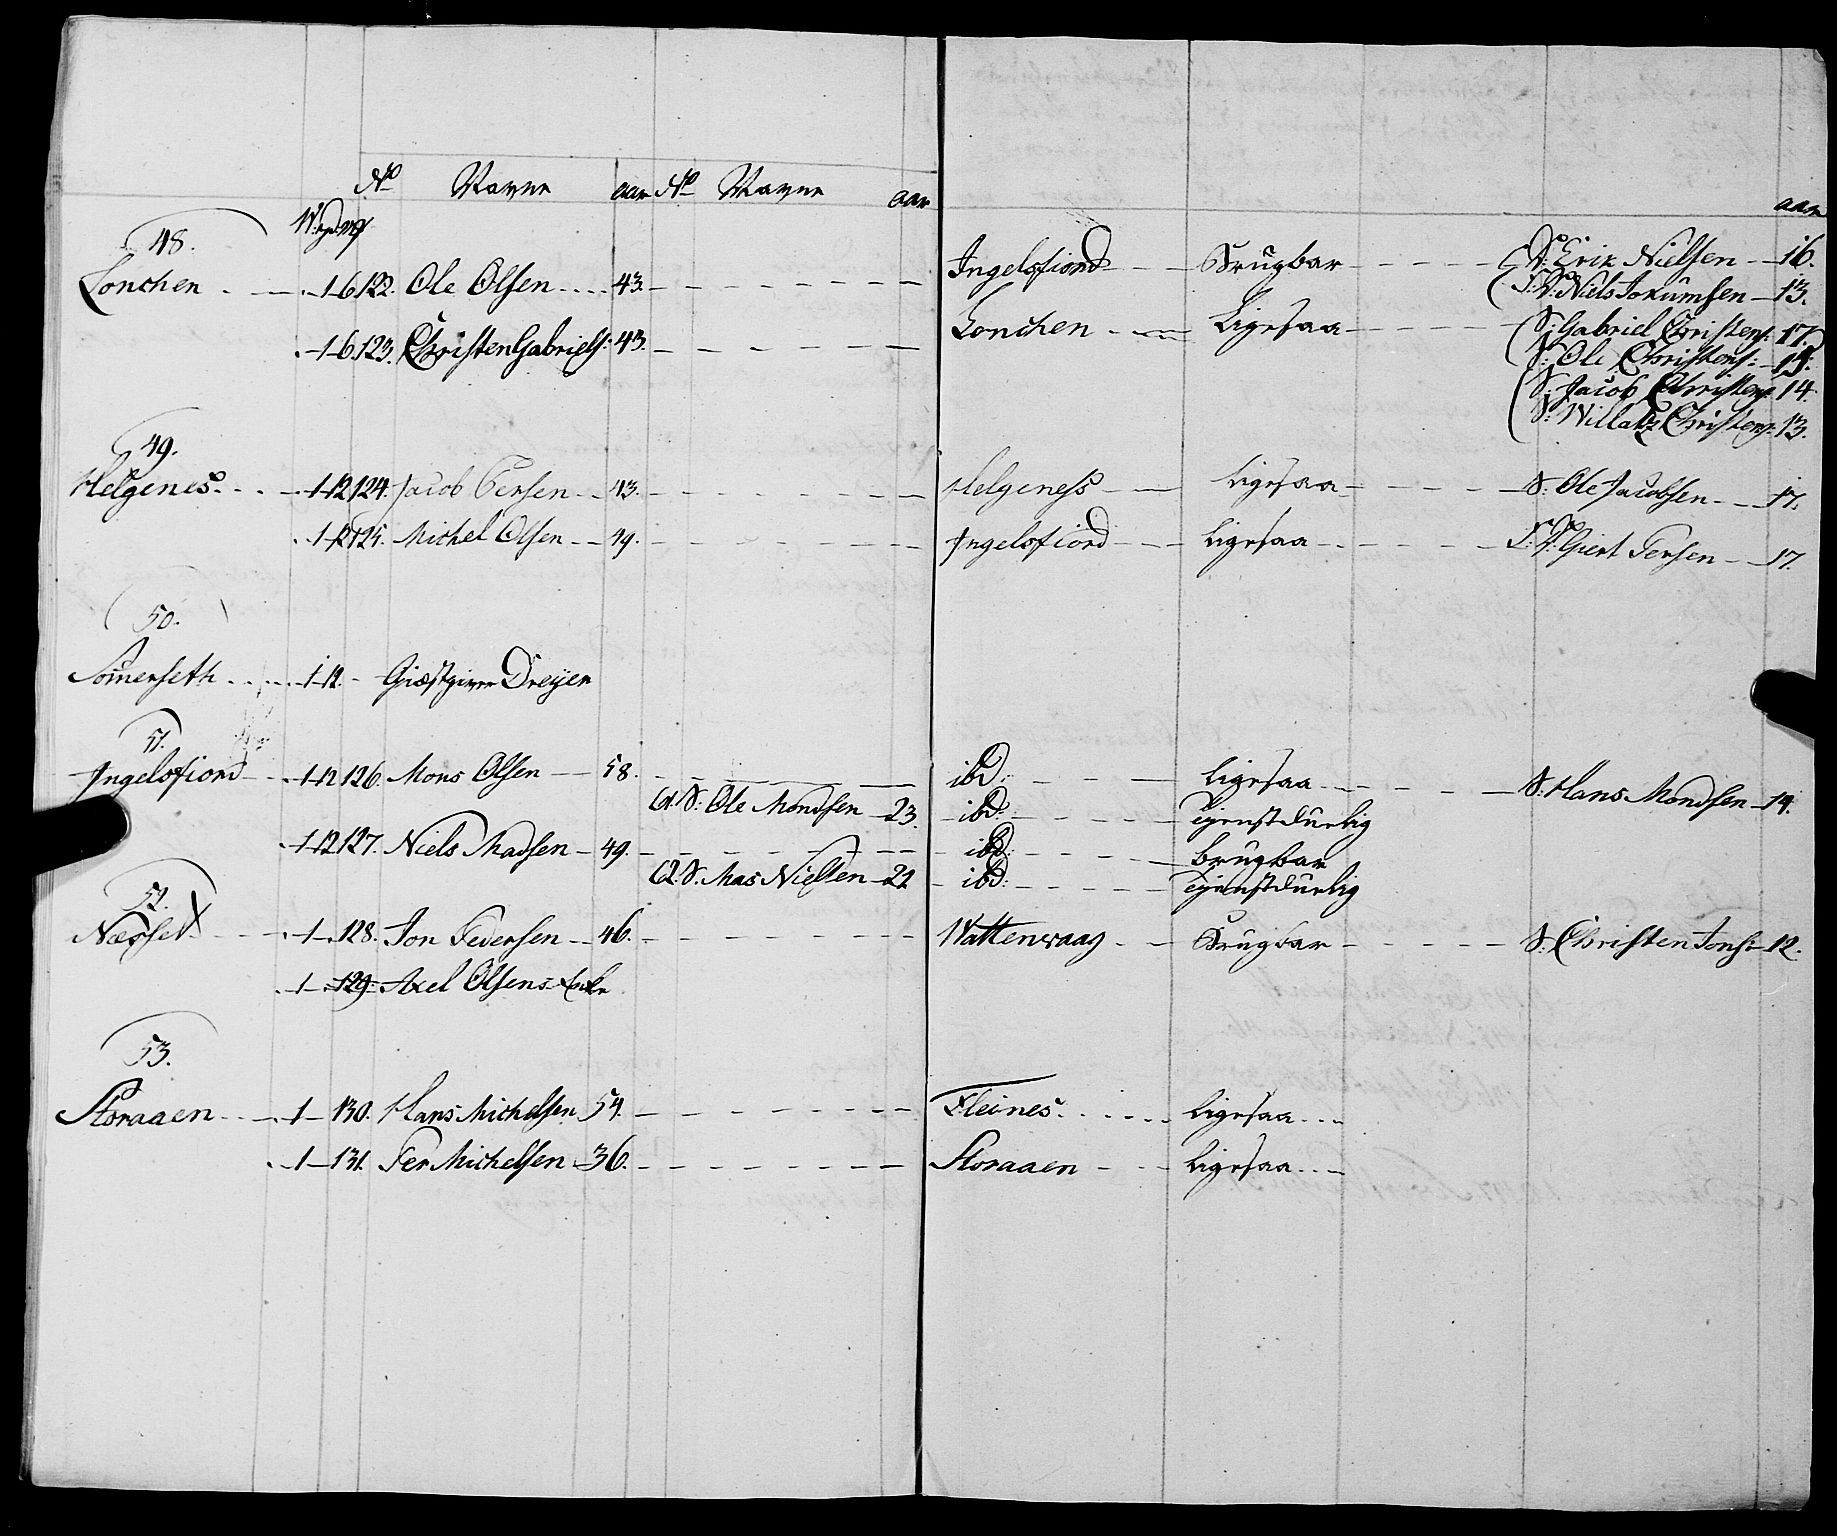 No Navne aar No Navne aar aar
48.
Lonchen . . 1-6. 122. Ole Olsen . . . . 43. Ingelsfiord Brugbar S: Erik Nielsen 16.
Niels Jokumsen 13.
1-6. 123. Christen Gabriels: 43. Lonchen Ligesaa S: Gabriel Christens: 17.
S: Ole Christens:
S: Jacob Christens: 14.
S: Willatz Christens: 13.
49.
Helgenes. 1-12 124. Jacob Persen 43. Helgeness Ligesaa S: Ole Jacobsen 17.
1-12 125. Michel Olsen 49. Ingelsfiord Ligesaa Giert Persen 17.
50.
Somerseth 1-12. Giæstgiver Dreyer
51.
Ingelsfiord 1-12 126. Mons Olsen 58. ibd: Ligesaa S: Hans Mondsen 14.
61. S: Ole Mondsen 23. ibd: Tienstduelig
1-12 127. Niels Madsen 49. ibd: brugbar
62. S: Mas Nielsen 22 ibd: Tienstduelig
52.
Næsset 1 128. Jon Pedersen 46. Wattenwaag Brugbar S: Christen Jons: 12.
1 129. Axel Olsens Enke
53.
Storaaen 1 130. Hans Michelsen 54. Fleines Ligesaa
1 131. Per Michelsen 36. Storaaen Ligesaa